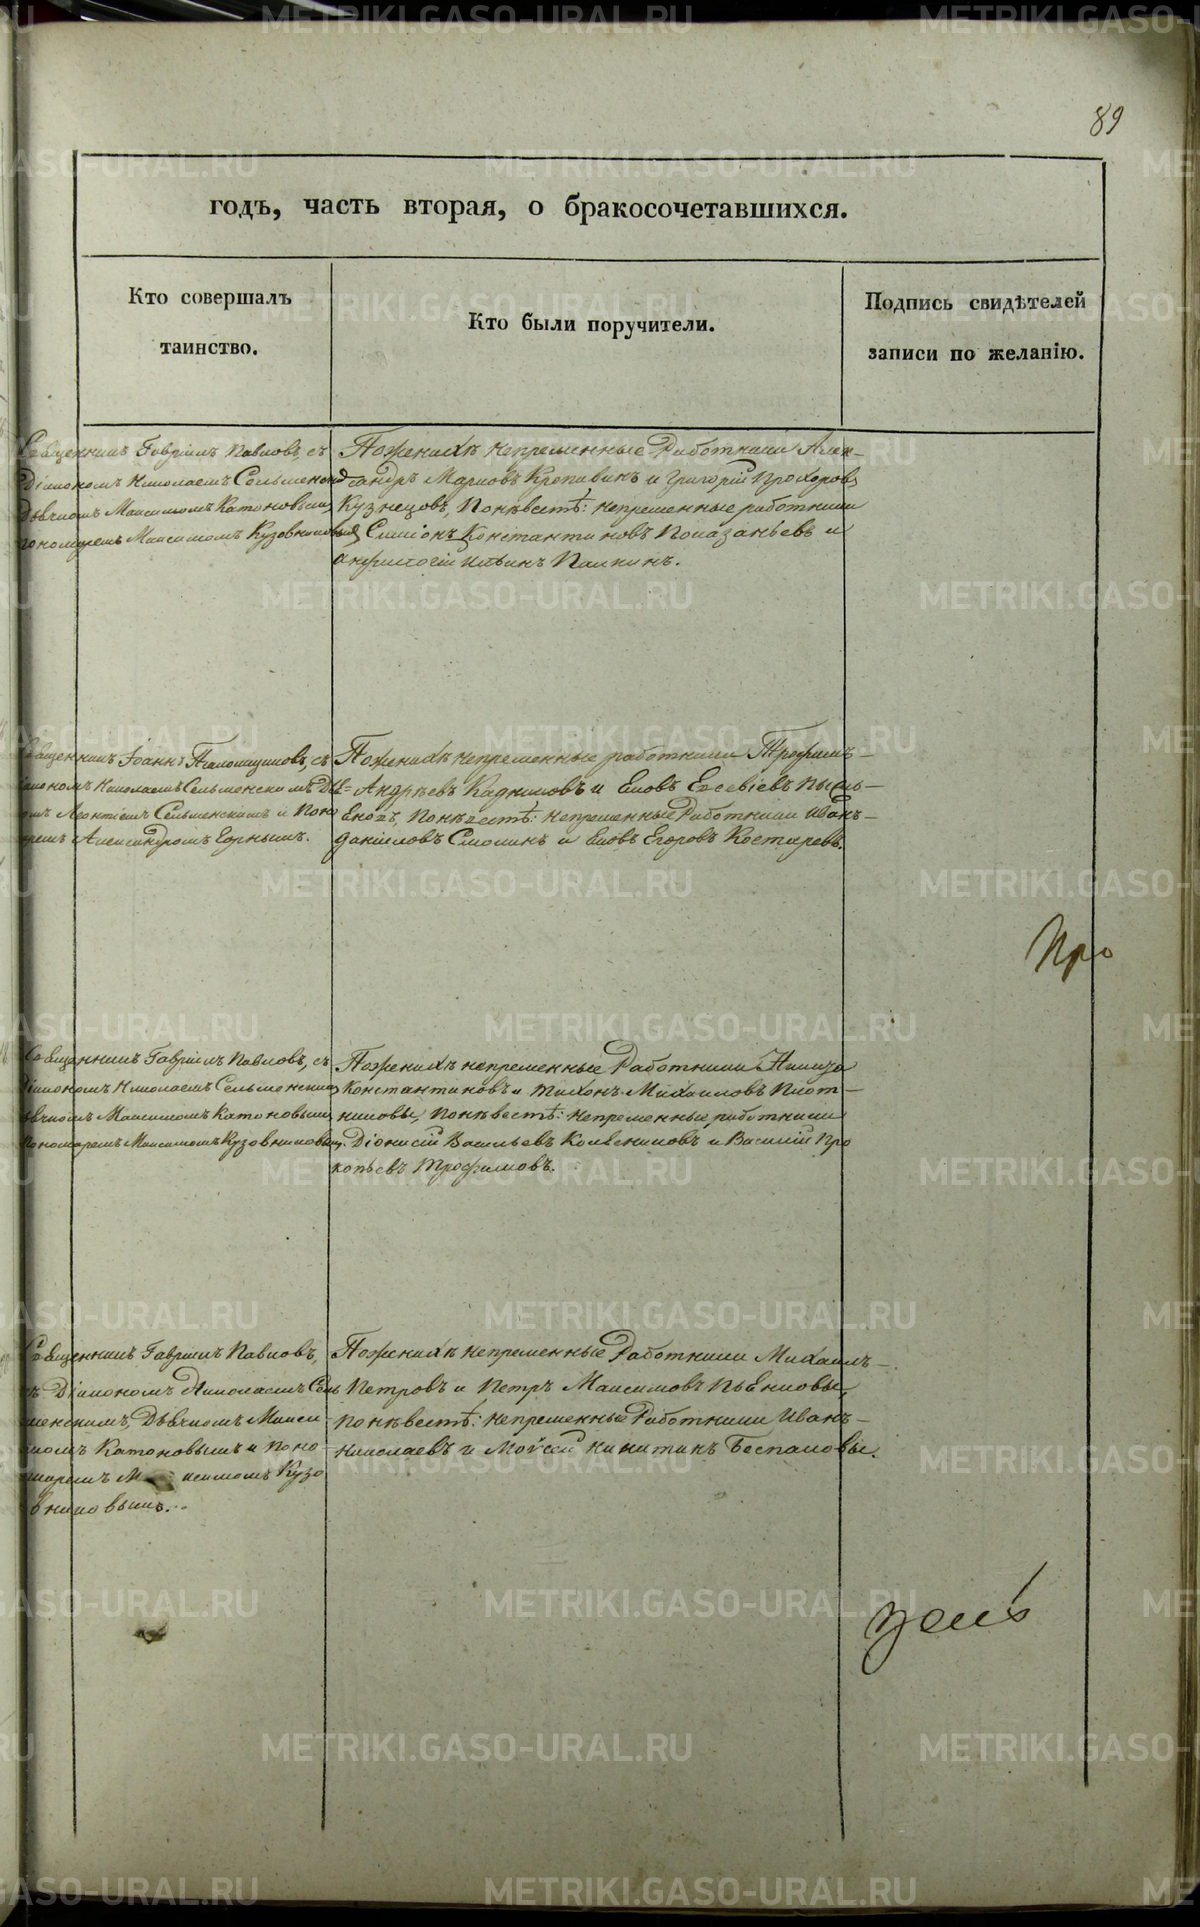 89
годъ, часть вторая, о бракосочетавшихся.
Кто совершалъ
таинство.
Кто были поручители.
Подпись свидѣтелей
записи по желанію.
Священникъ Гавріилъ Павловъ, съ
Діакономъ Николаемъ Сельменским
Дьячкомъ Максимомъ Катоновым
пономаремъ Максимомъ Кузовниковым
По женихѣ непременные Работники Алек-
сандръ Марковъ Кропивинъ и Григорій Прохоровъ
Кузнецовъ, По невестѣ: непременные работники
Симіонъ Константиновъ Показаньевъ и
Ильинъ Палкинъ.
Священникъ Іоаннъ съ
Діакономъ Николаемъ Сельменскимъ Дья=
комъ Леонтіемъ Сельменскимъ и Поно
маремъ Александромъ Горнымъ.
По женихѣ непременные работники Трофимъ-
Андрѣевъ Кадниковъ и Яковъ Евсевіевъ
По невестѣ: непременные Работники Иванъ-
Даниловъ Смолинъ и Яковъ Егоровъ Костаревъ.
Про
Священникъ Гавріилъ Павловъ, съ
Діакономъ Николаемъ Сельменским
Дьячкомъ Максимомъ Катоновым
Пономаремъ Максимомъ Кузовниковым
По женихѣ непременные Работники Никита
Константиновъ и Тихонъ Михаиловъ Плот-
никовы, По невестѣ: непременные работники
Діонисій Васильевъ Колесниковъ и Василій Про
копьевъ Трофимовъ.
Священникъ Гавріилъ Павловъ,
съ Діакономъ Николаемъ Сель
менскимъ, Дьячкомъ Макси
момъ Катоновымъ и Поно-
маремъ Максимомъ Кузо
вниковымъ.
По женихѣ непременные Работники Михаилъ-
Петровъ и Петръ Максимовъ Пьянковы,
По невестѣ: непременные Работники Иванъ-
Николаевъ и Моѵсей Никитинъ Беспаловы.